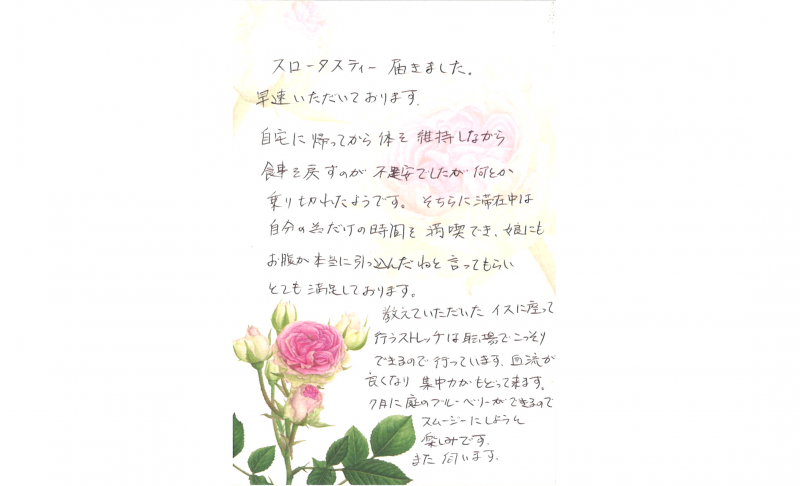 スロータスティー 届きました。
早速いただいております。
自宅に帰ってから 体を 維持しながら
食事を戻すのが 不安でしたが 何とか
乗り切れたようです。 そちらに滞在中は
自分の為だけの時間を 満喫でき、娘にも
お腹が本当に引っ込んだねと 言ってもらい
とても 満足しております。
教えていただいた イスに座って
行うストレッチは 職場でこっそり
できるので 行っています。血流が
良くなり 集中力がもどって来ます。
7月に 庭のブルーベリーができるので
スムージーにしようと
楽しみです。
また 伺います。